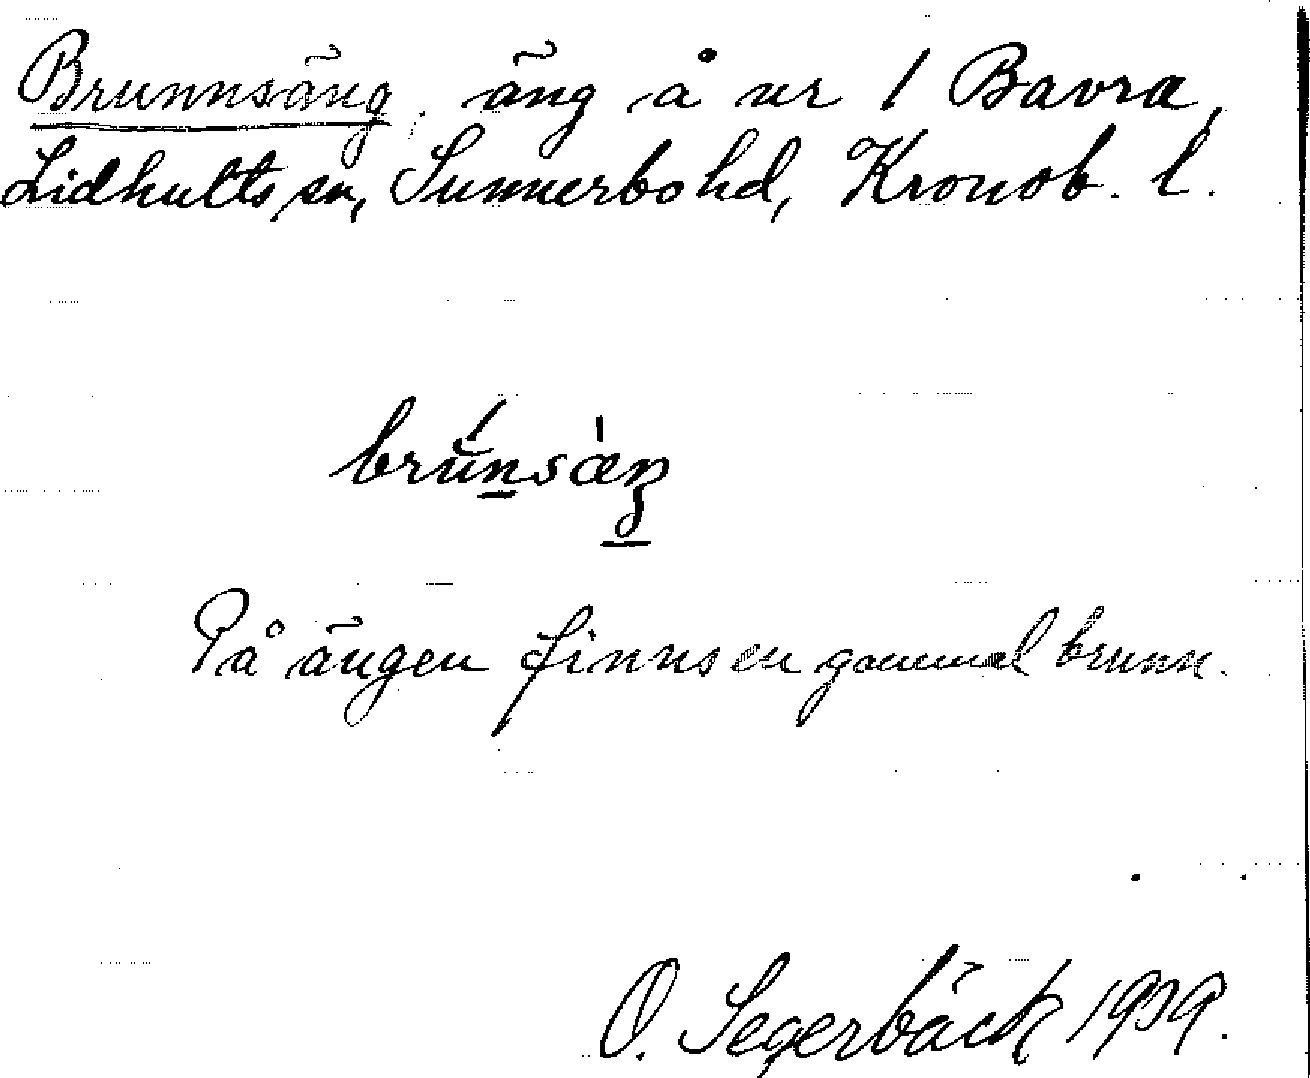 Brunnsäng, äng å nr 1 Bavra,
Lidhults sn, Sunnerbo hd, Kronob. l.
brúnsàŋ
På ängen finns en gammal brunn.
O. Segerbäck 1939.